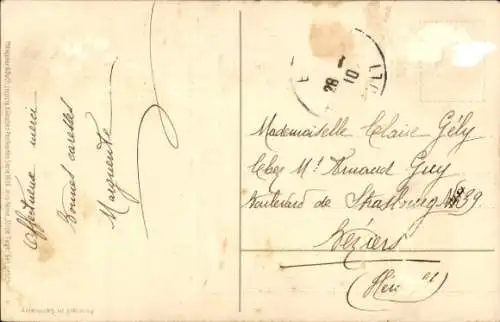 Affectueux merci
Bonnes caresses
Marguerite
Mademoiselle Claire Gély
Chez Mr Arnaud Guy
Boulevard de Strasbourg N 39
Béziers
(Hér lt)
28
10
Printed in Germany